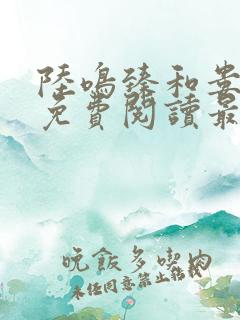 陸鳴臻和婁
免費閱讀最
晚飯多喫肉
未经同意禁止转载